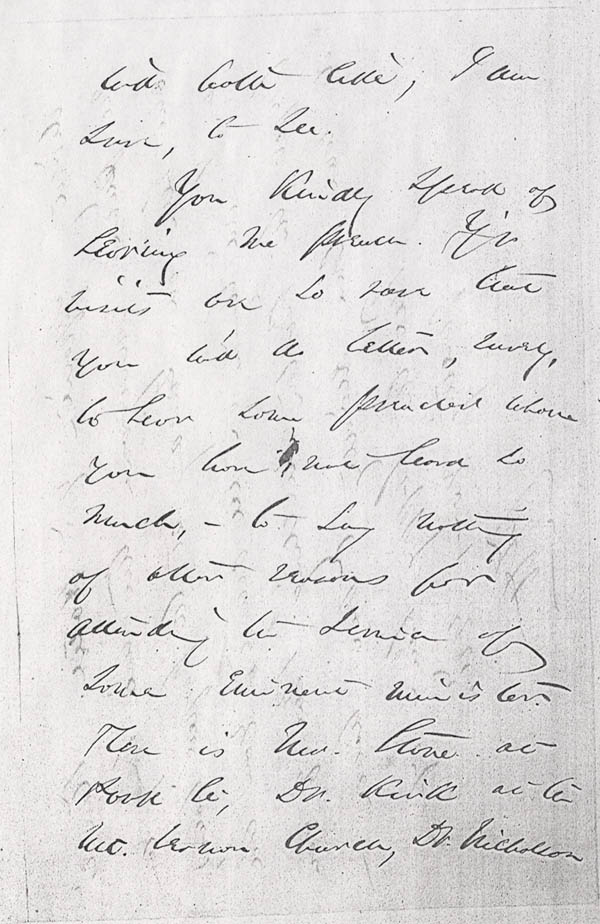 both like, I am
sure, to see.
You kindly speak of
hearing me preach. Y'r
visits are so rare that
you w'd do better, surely,
to hear some preacher whom
you have not heard so
much, – to say nothing
of other reasons for
attending the service of
some eminent minister.
There is Mr. Stone at
Park St, Dr. Kirk at the
Mt. Vernon Church, Dr. Nicholson